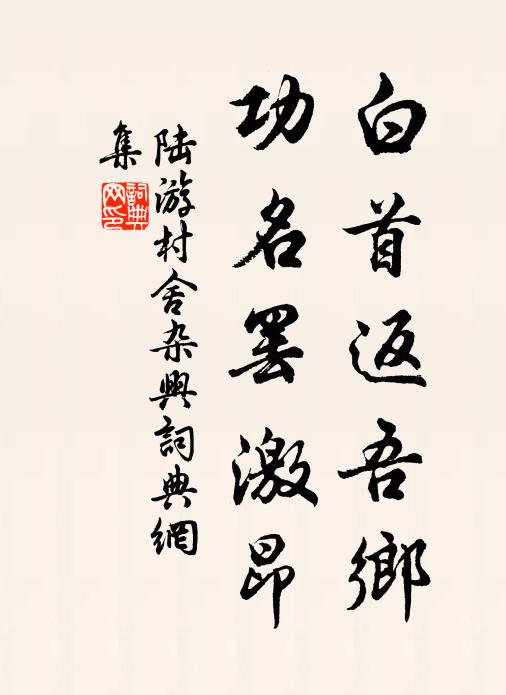 白首返吾鄉
功名罷激昂
陸游村舍杂興詞典網
集
詞典
网印